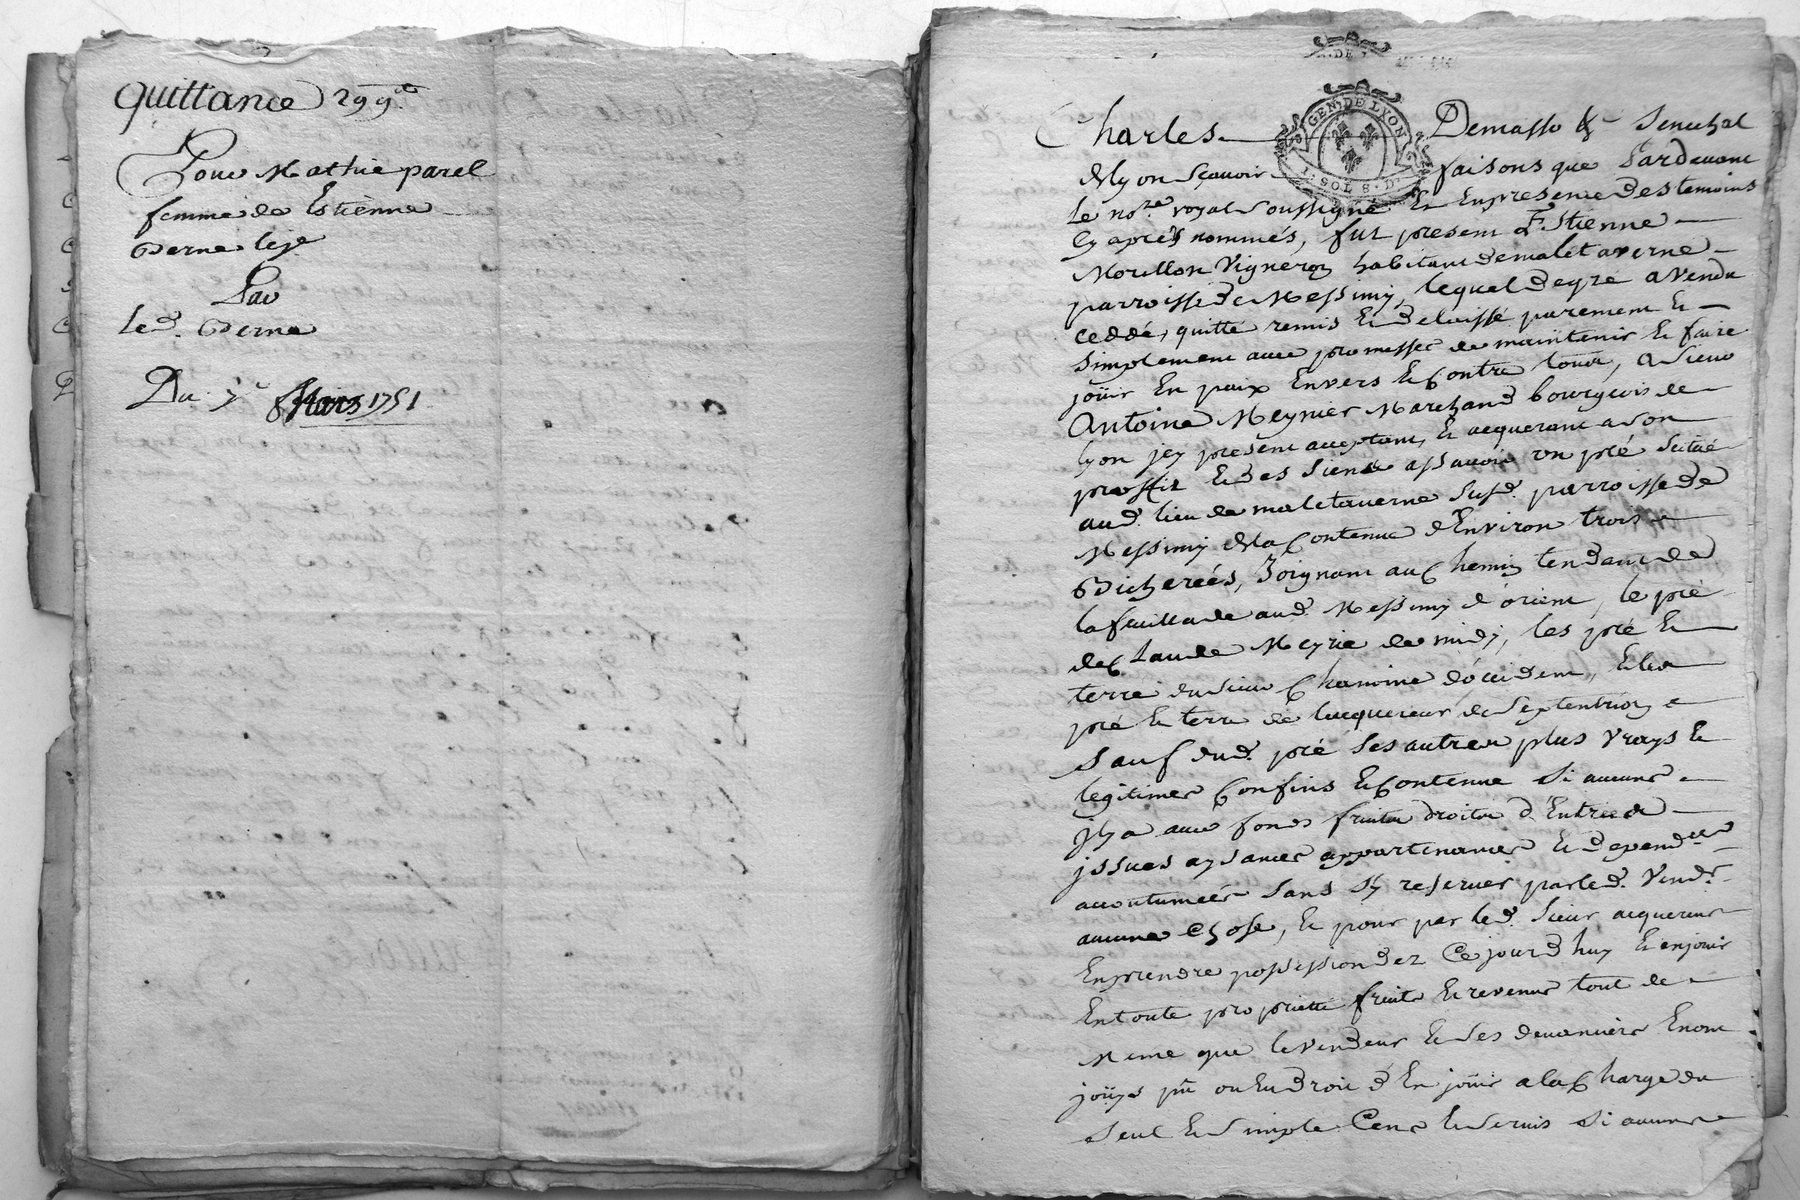 Quittance 299ᵗᵗ
Pour Mathie parel
femme de Estienne
Berne
Par
led. Berne
Du 7ᵉ Mars 1751
DE
GEN. DE LYON
1. SOL 8. Dᴿˢ
Charles Demasso &c Senechal
de Lyon Sçavoir faisons que Pardevant
le noʳᵉ royal Soussigné Et En presence des temoins
Cy aprés nommés, fut present Estienne
Morillon Vigneron habitant de maletaverne
parroisse de Messimy, lequel de gré a vendu
ceddé, quitté remis Et delaissé purement Et
Simplement avec promesses de maintenir Et faire
joüir En paix Envers Et Contre tous, a Sieur
Antoine Meynier Marchand bourgeois de
Lyon jcy present acceptant, Et acquerant a Son
proffit Et des Siens assavoir un pré Scitué
aud. lieu de maletaverne Susd. parroisse de
Messimy de la Contenue d'Environ trois
Bicherées, Joignant au Chemin tendant de
la feuillade aud. Messimy d'orient, le pré
de Claude Meyrie de midy, les pré Et
terre du Sieur Chanoine d'occident, Et les
pré Et terre de l'acquereur de Septentrion
Sauf dud. pré Ses autres plus vrays Et
legitimes Confins Et Contenue Si aucuns
jl y a avec fonds fruits droits d'Entrées
jssues aysances appartenances Et dependᶜᵉˢ
accoutumées Sans S'y reserver par led. Vendʳ
aucune Chose, Et pour par led. Sieur acquereur
En prendre possession dez Ce jourd'huy Et en joüir
En toute proprietté fruits Et revenus tout de
Meme que le vendeur Et Ses devanciers En ont
joüys pû ou Eu droit d'En joüir a la Charge du
Seul Et Simple Cens Et Servis Si aucuns